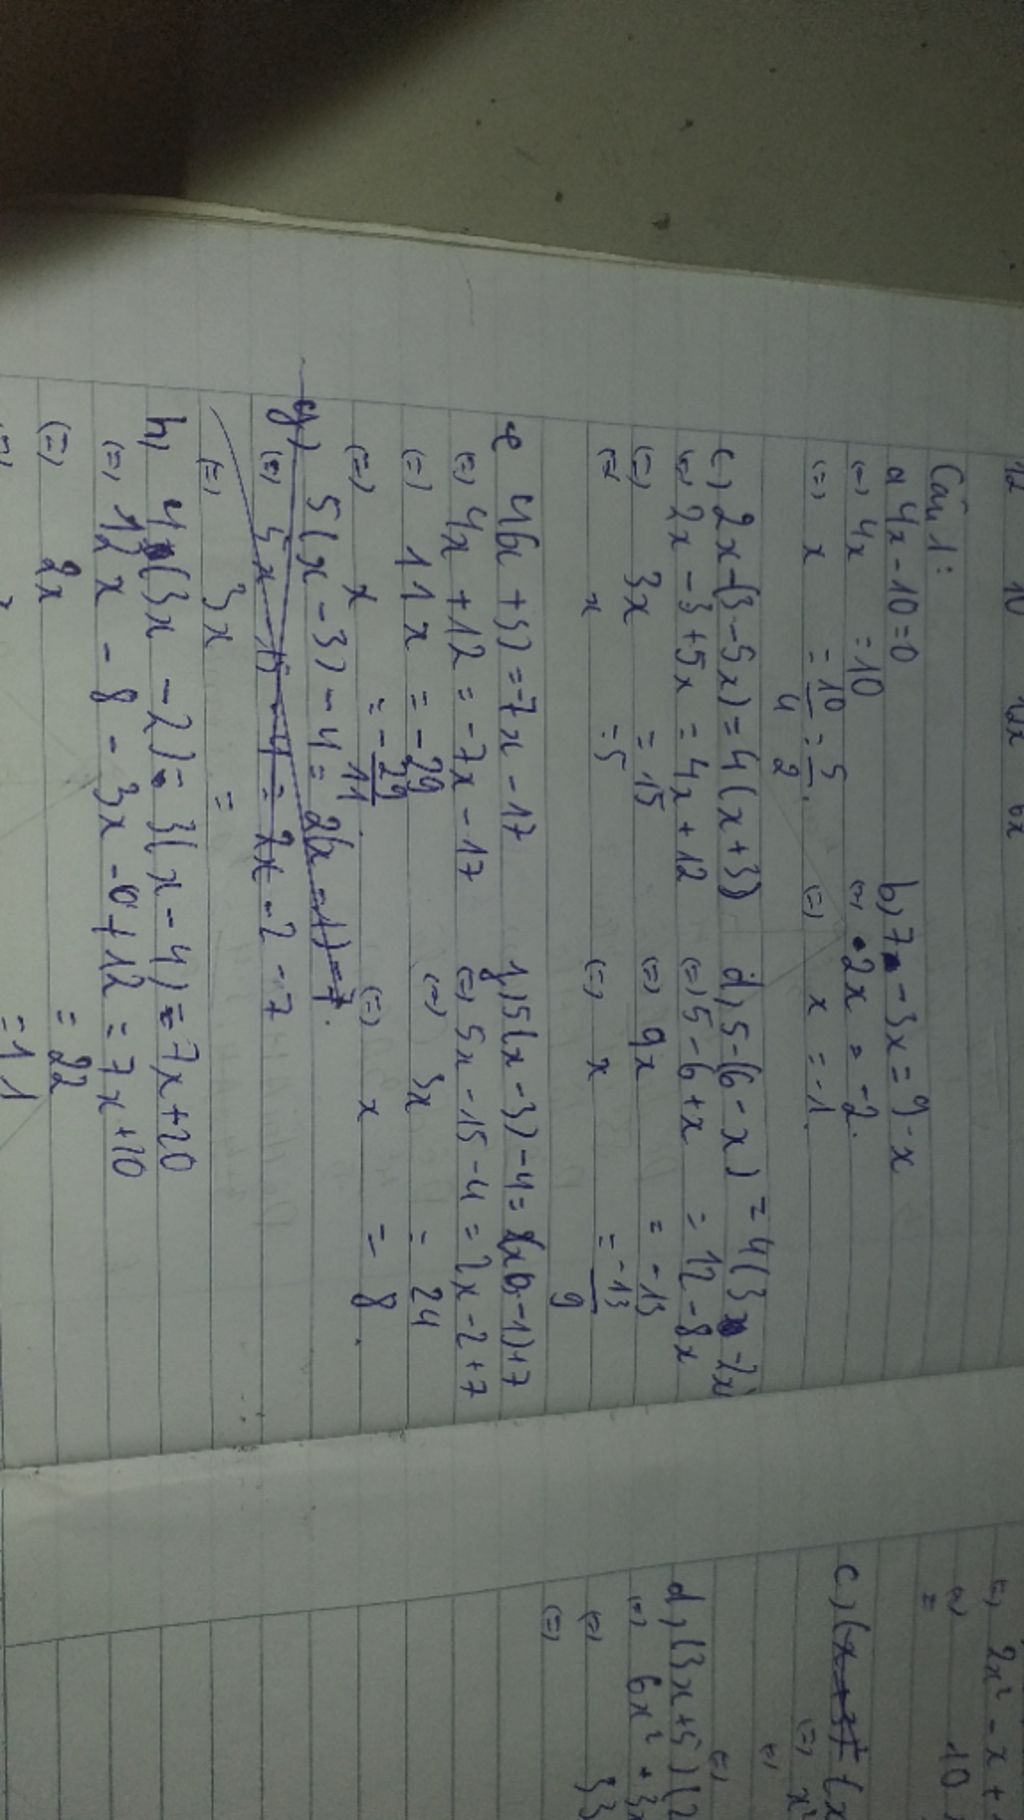 12 10 12x 6x
Câu 1:
a, 4x - 10 = 0
(=) 4x = 10
(=) x = 10/4 = 5/2.
b, 7 - 3x = 9 - x
(=) -2x = -2.
(=) x = -1.
c, 2x - (3 - 5x) = 4(x + 3)
(=) 2x - 3 + 5x = 4x + 12
(=) 3x = 15
(=) x = 5
d, 5 - (6 - x) = 4(3 - 2x)
(=) 5 - 6 + x = 12 - 8x
(=) 9x = -13
(=) x = -13/9
e, 4(x + 3) = -7x - 17
(=) 4x + 12 = -7x - 17
(=) 11x = -29
(=) x = -29/11.
f, 5(x - 3) - 4 = 2(x - 1) + 7
(=) 5x - 15 - 4 = 2x - 2 + 7
(=) 3x = 24
(=) x = 8.
g) 5(x - 3) - 4 = 2(x - 1) - 7.
(=) 5x - 15 - 4 = 2x - 2 - 7
(=) 3x =
h, 4(3x - 2) - 3(x - 4) = 7x + 20
(=) 12x - 8 - 3x + 12 = 7x + 20
(=) 2x = 22
= 11
(=) 2x² - x +
(=) 10
=
c, (x + 3)
(=) x²
d, (3x + 5)(2
(=) 6x² + 3x
(=) 33
(=)